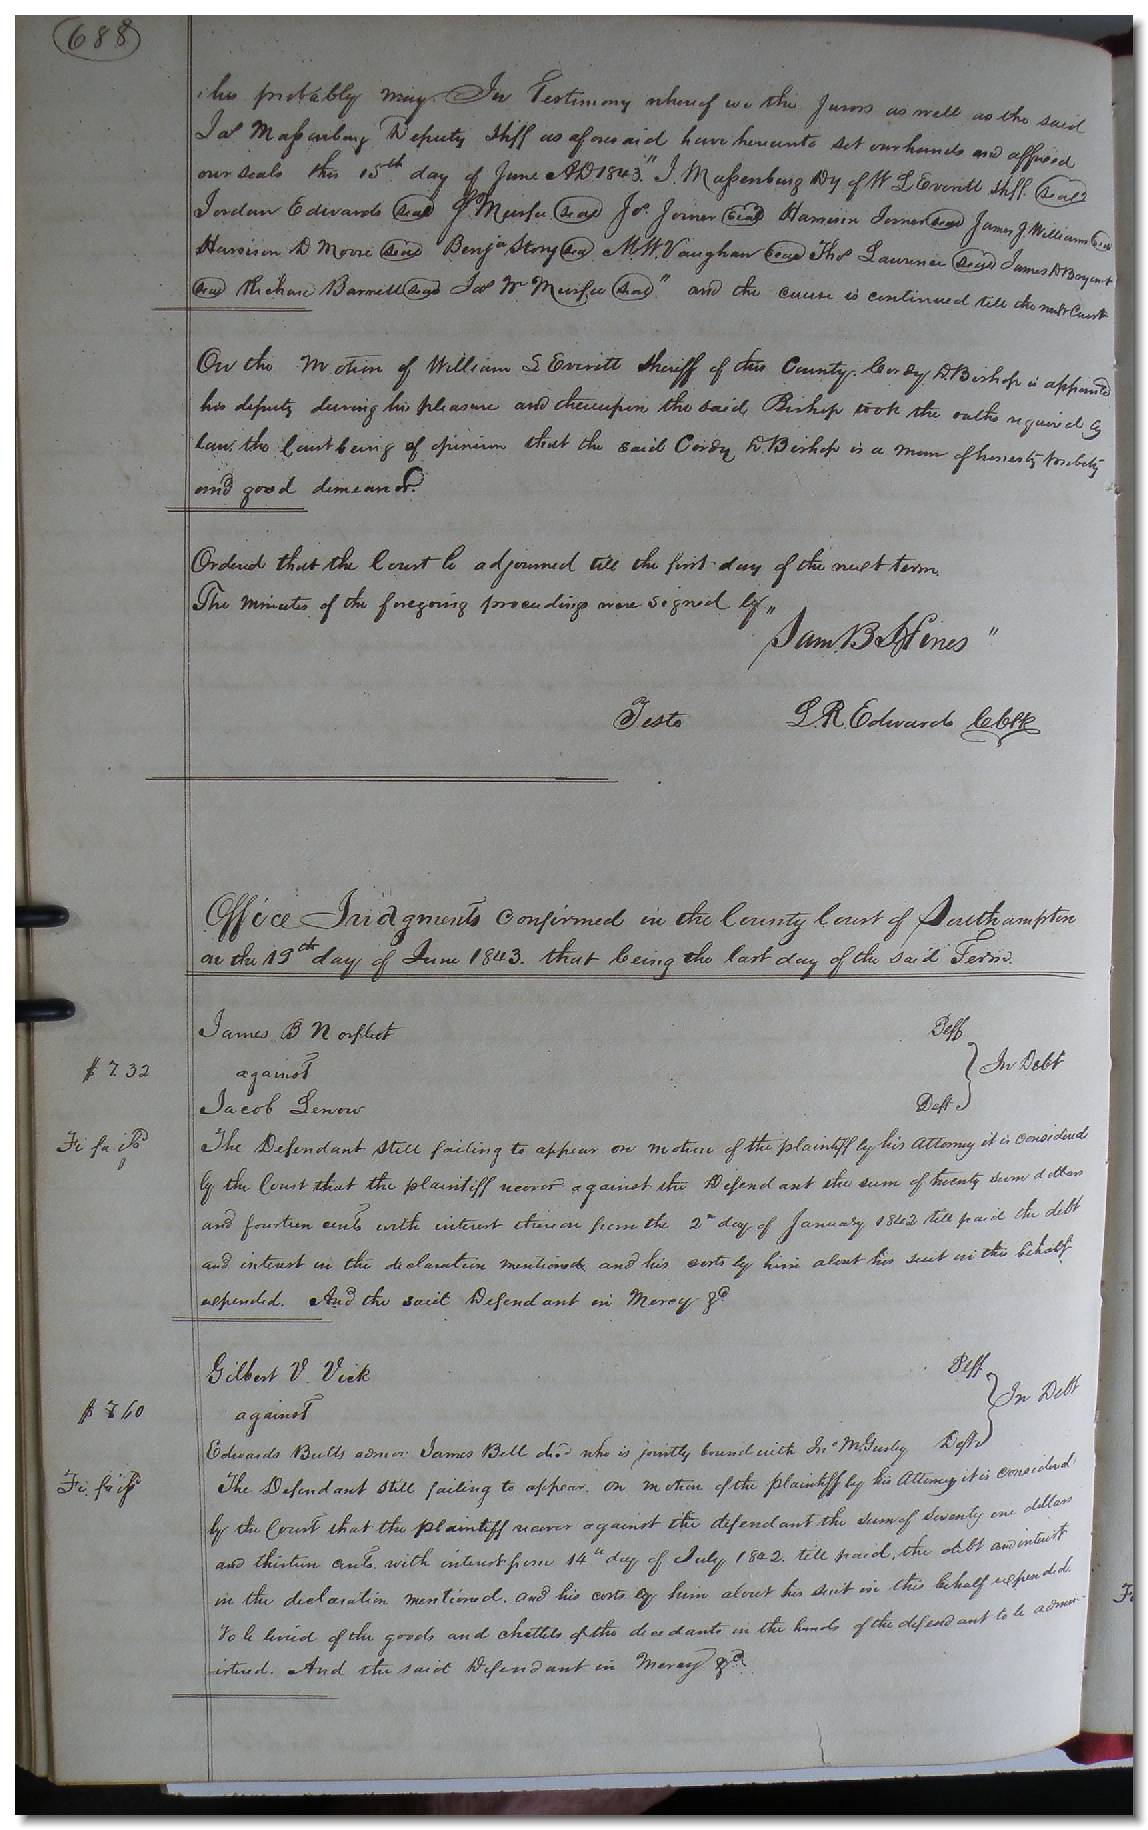 688
he probably may. In Testimony whereof we the Jurors as well as the said
Jas Massenburg Deputy Shff as aforesaid have hereunto set our hands and affixed
our seals this 15th day of June AD 1843." J. Massenburg Dy of W L Everitt Shff. (seal)
Jordan Edwards (seal) J. Murfee (seal) Js. Joiner (seal) Harrison Joiner (seal) James J Williams (seal)
Harrison D Moore (seal) Benja Story (seal) M. W. Vaughan (seal) Thos Lawrence (seal) James D Bryant
(seal) Richard Barrett (seal) Jas W Murfee (seal)" and the cause is continued till the next Court
On the Motion of William L Everitt Sheriff of this County. Cordy D. Bishop is appointed
his deputy during his pleasure and thereupon the said Bishop took the oaths required by
law, the Court being of opinion that the said Cordy D. Bishop is a man of honesty probity
and good demeanor.
Ordered that the Court be adjourned till the first day of the next term.
The minutes of the foregoing proceedings were signed by "
Sam. B Hines "
Teste L. R. Edwards CClk
Office Judgments confirmed in the County Court of Southampton
on the 19th day of June 1843. that being the last day of the said Term.
James B Norfleet Plff
$ 7.32 against In Debt
Jacob Lenow Deft
Fi fa isd The Defendant still failing to appear on motion of the plaintiff by his attorney it is considered
by the Court that the plaintiff recover against the Defendant the sum of twenty seven dollars
and fourteen cents with interest thereon from the 2d day of January 1842 till paid the debt
and interest in the declaration mentioned and his costs by him about his suit in this behalf
expended. And the said Defendant in Mercy &c
Gilbert V. Vick Plff
$ 7.60 against In Debt
Edwards Butts admor James Bell decd who is jointly bound with Jno M. Gurley Deft
Fi fa isd The Defendant still failing to appear. on motion of the plaintiff by his Attorney it is considered
by the Court that the plaintiff recover against the defendant the sum of seventy one dollars
and thirteen cents. with interest from 14th day of July 1842. till paid, the debt and interest
in the declaration mentioned. and his costs by him about his suit in this behalf expended.
To be levied of the goods and chattels of the decedants in the hands of the defendant to be admin-
istered. And the said Defendant in Mercy &c.